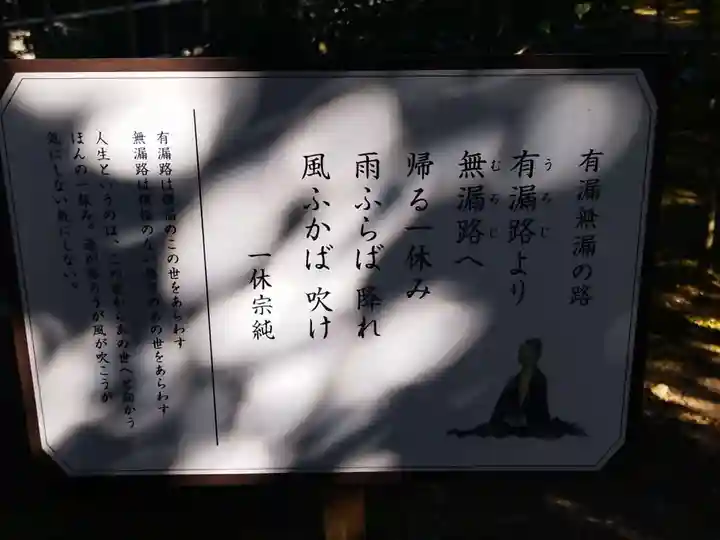 有漏無漏の路
有漏路より
うろじ
無漏路へ
むろじ
帰る一休み
雨ふらば 降れ
風ふかば 吹け
一休宗純
有漏路は煩悩のこの世をあらわす
無漏路は煩悩のない のあの世をあらわす
人生というのは、この世からあの世へと向かう
ほんの一休み。雨が降ろうが風が吹こうが
気にしない気にしない。